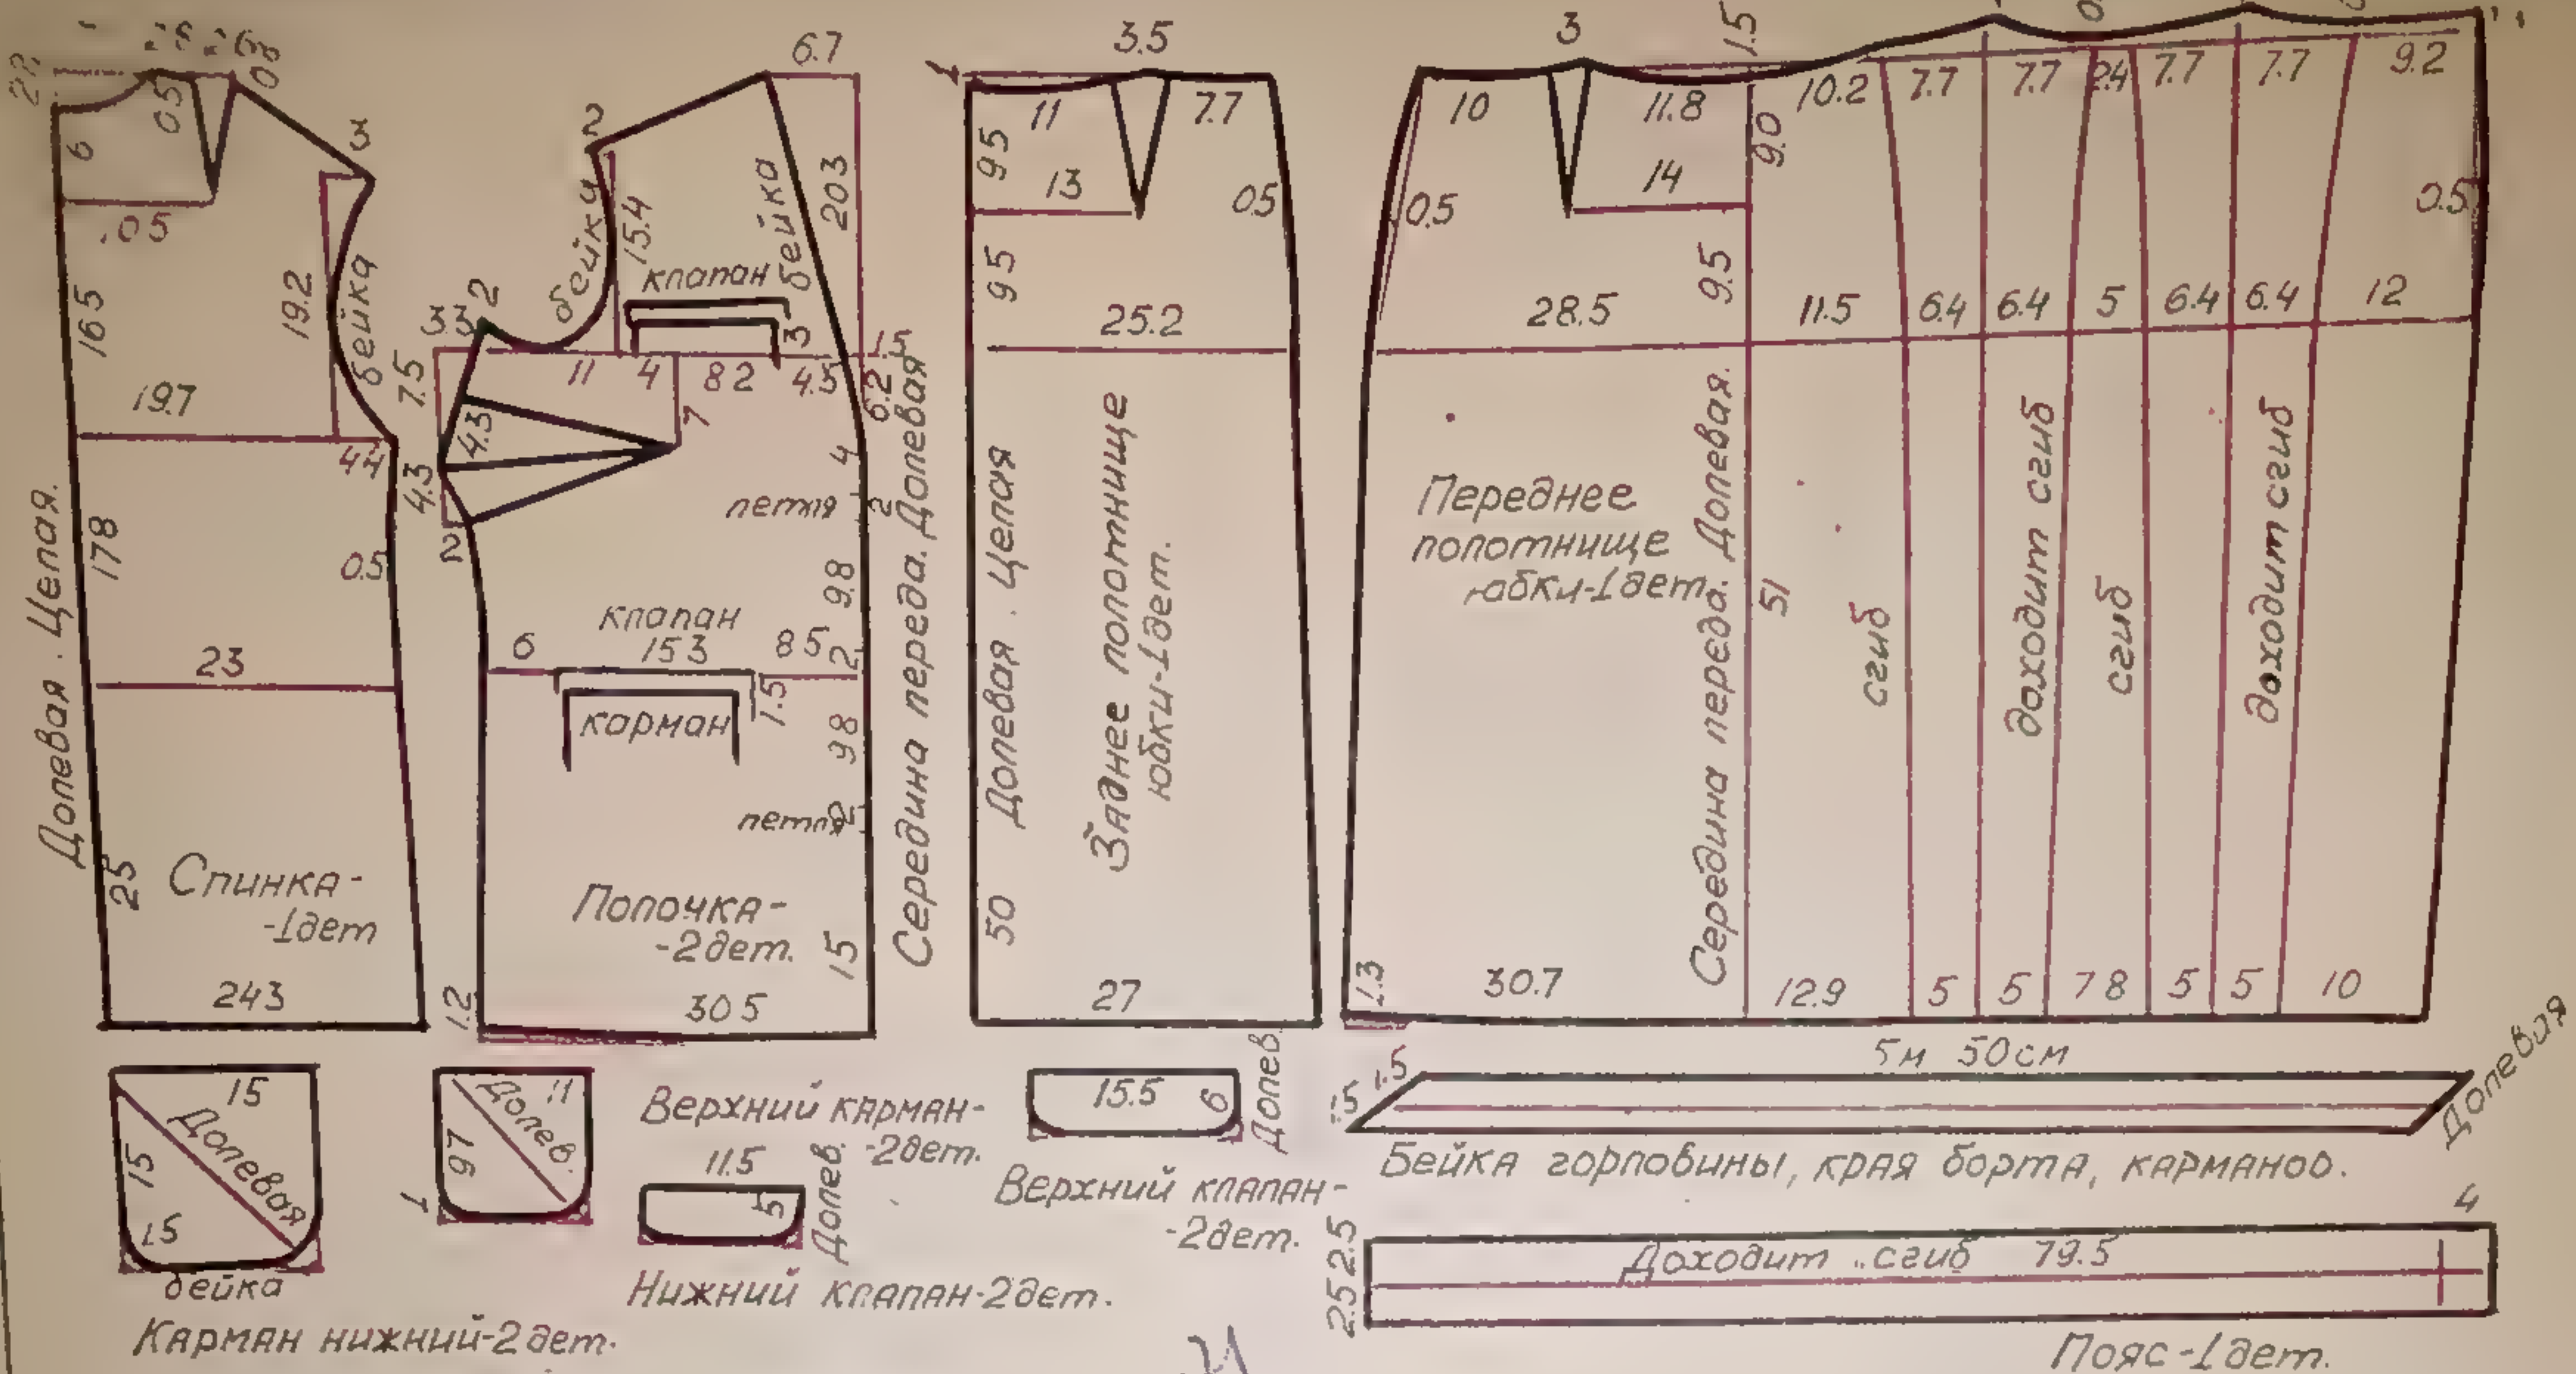 Долевая. Целая.
22
6
0.5
3
.05
165
19.2
бейка
19.7
44
178
0.5
23
25
Спинка-
-1дет
243
6.7
2
бейка
15.4
бейка
203
клапан
3
2
3.3
7.5
11
4
82
4.5
1.5
6.2
4.3
4.3
7
4
2
петля
2
9.8
клапан
6
153
85
2
карман
1.5
98
петля
2
Полочка-
-2дет.
15
1.2
305
Середина переда. Долевая
1
3.5
11
7.7
95
13
0.5
95
25.2
Долевая. Целая
Заднее полотнище
юбки-1дет.
50
27
3
1.5
10
11.8
9.0
14
0.5
9.5
28.5
Переднее
полотнище
юбки-1дет.
Середина переда. Долевая.
51
1.3
30.7
10.2
7.7
7.7
2.4
7.7
7.7
9.2
0.5
11.5
6.4
6.4
5
6.4
6.4
12
сгиб
доходит сгиб
сгиб
доходит сгиб
12.9
5
5
78
5
5
10
15
15
1.5
Долевая
бейка
Карман нижний-2дет.
11
97
1
Долев.
Верхний карман-
-2дет.
11.5
5
Долев.
Нижний клапан-2дет.
15.5
6
Долев.
Верхний клапан-
-2дет.
5м 50см
1.5
1.5
Долевая
Бейка горловины, края борта, карманов.
4
2.5
2.5
Доходит сгиб 79.5
Пояс-1дет.